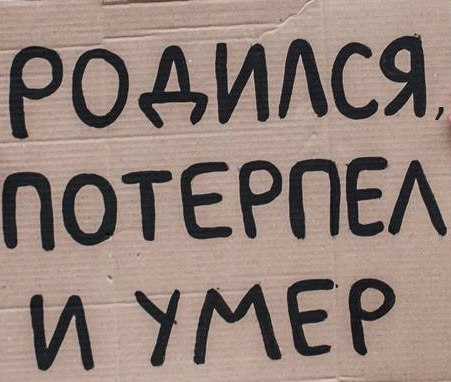 РОДИЛСЯ,
ПОТЕРПЕЛ
И УМЕР